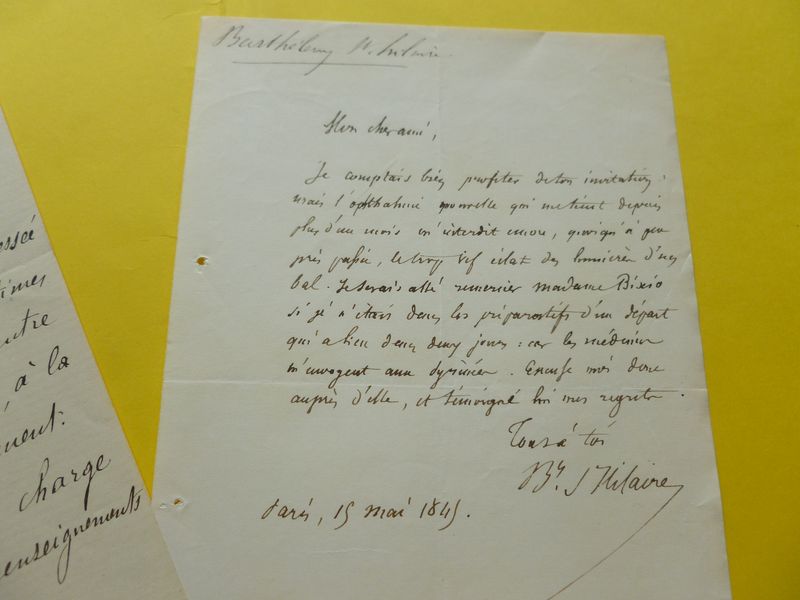 Barthélemy St hilaire
Mon cher ami,
Je comptais bien profiter de ton invitation :
mais l'ophthalmie nouvelle qui me tient depuis
plus d'un mois m'interdit encore, quoiqu'à peu
près passée, le trop vif éclat des lumières d'un
bal. Je serais allé remercier madame Bixio
si je n'étais dans les préparatifs d'un départ
qui a lieu dans deux jours : car les médecins
m'envoyent aux Pyrénées. Excuse moi donc
auprès d'elle, et témoigne lui mes regrets.
Tout à toi
By. St Hilaire
Paris, 15 mai 1845.
essé
times
ntre
à la
ment.
charge
enseignements